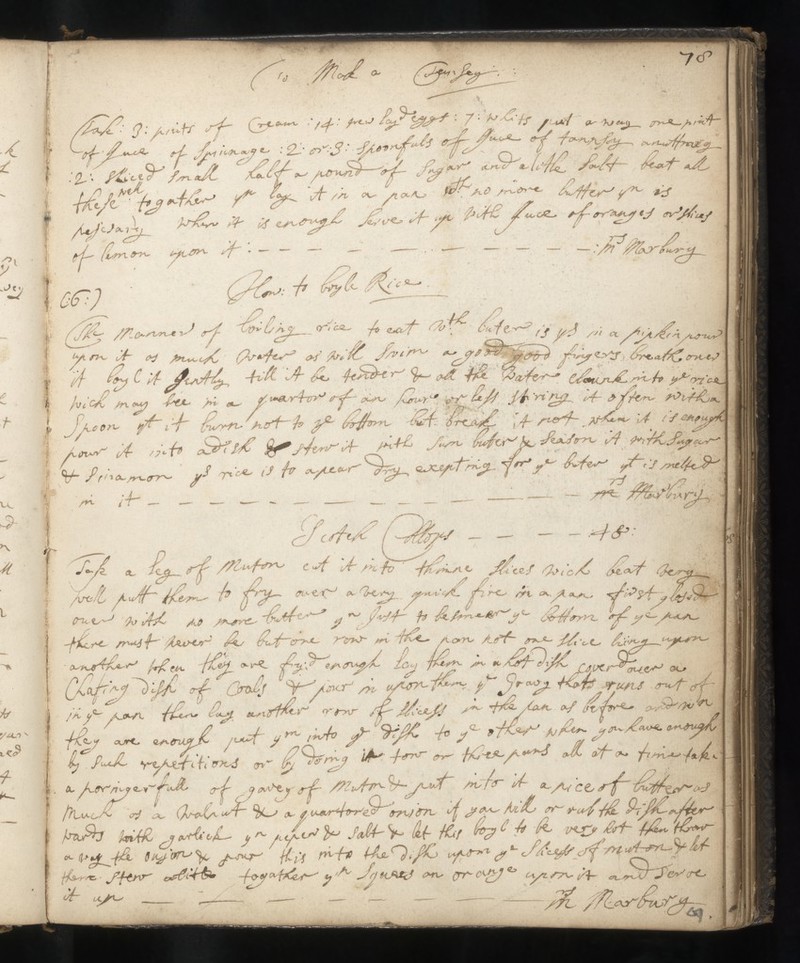 78
To Mak a Tansey :
Take : 3 : pints of Cream : 14 : new layd eggs : 7 : whits put a way one pint
of Juce of Spinnage : 2 : or : 3 : spoonfuls of Juce of tannsey a nuttmeg
: 2 : sliced small half a pound of Sugar and a litle Salt beat all
these well togather yn lay it in a pan wth no more butter yn is
nescsary when it is enough serve it up with Juce of oranges or slices
of lemon upon it : — — — — — — — — : Mrs Marbury
(: 6 :) How : to boyle Rice
The manner of boiling rice to eat wth buter is ys in a pipkin pour
upon it as much Water as will swim a good good fingers breath over
it boyl it gently till it be tender & all the Water drunk into ye rice
wich may bee in a quartor of an hour or less stiring it often with a
Spoon yt it burn not to ye bottom but break it not when it is enough
pour it into a dish & stew it with sum buter & season it with Sugar
& Sinamon ys rice is to apear dry exepting for ye buter yt is melted
in it — — — — — — — — — — — Mrs Marbury
Scotch Collops — — — —
Take a Leg of Muton cut it into thinne slices wich beat very
well putt them to fry over a very quick fire in a pan first glased
over with no more butter yn Just to besmear ye bottom of ye pan
there must never be but one row in the pan not one slice liing upon
another when they are fryd enough lay them in a hot dish coverd over a
Chafing dish of Coals & pour in upon them ye Gravy that runs out of
in ye pan then lay another row of slicess in the pan as before and wn
they are enough put ym into ye dish to ye other when you have enough
by such repetitions or by doing it tow or three pans all at a time take
a poringer full of gavey of muton & put into it a pice of butter as
Much as a Walnut & a quartored onion if you will or rub the dish after
wards with garlick yn peper & salt & let this boyl to be very hot then throw
a way the onion & pour this into the dish upon ye slicess of muton & let
them stew a litle togather yn squees an orange upon it and serve
it up — — — — — — — — Mrs Marbury